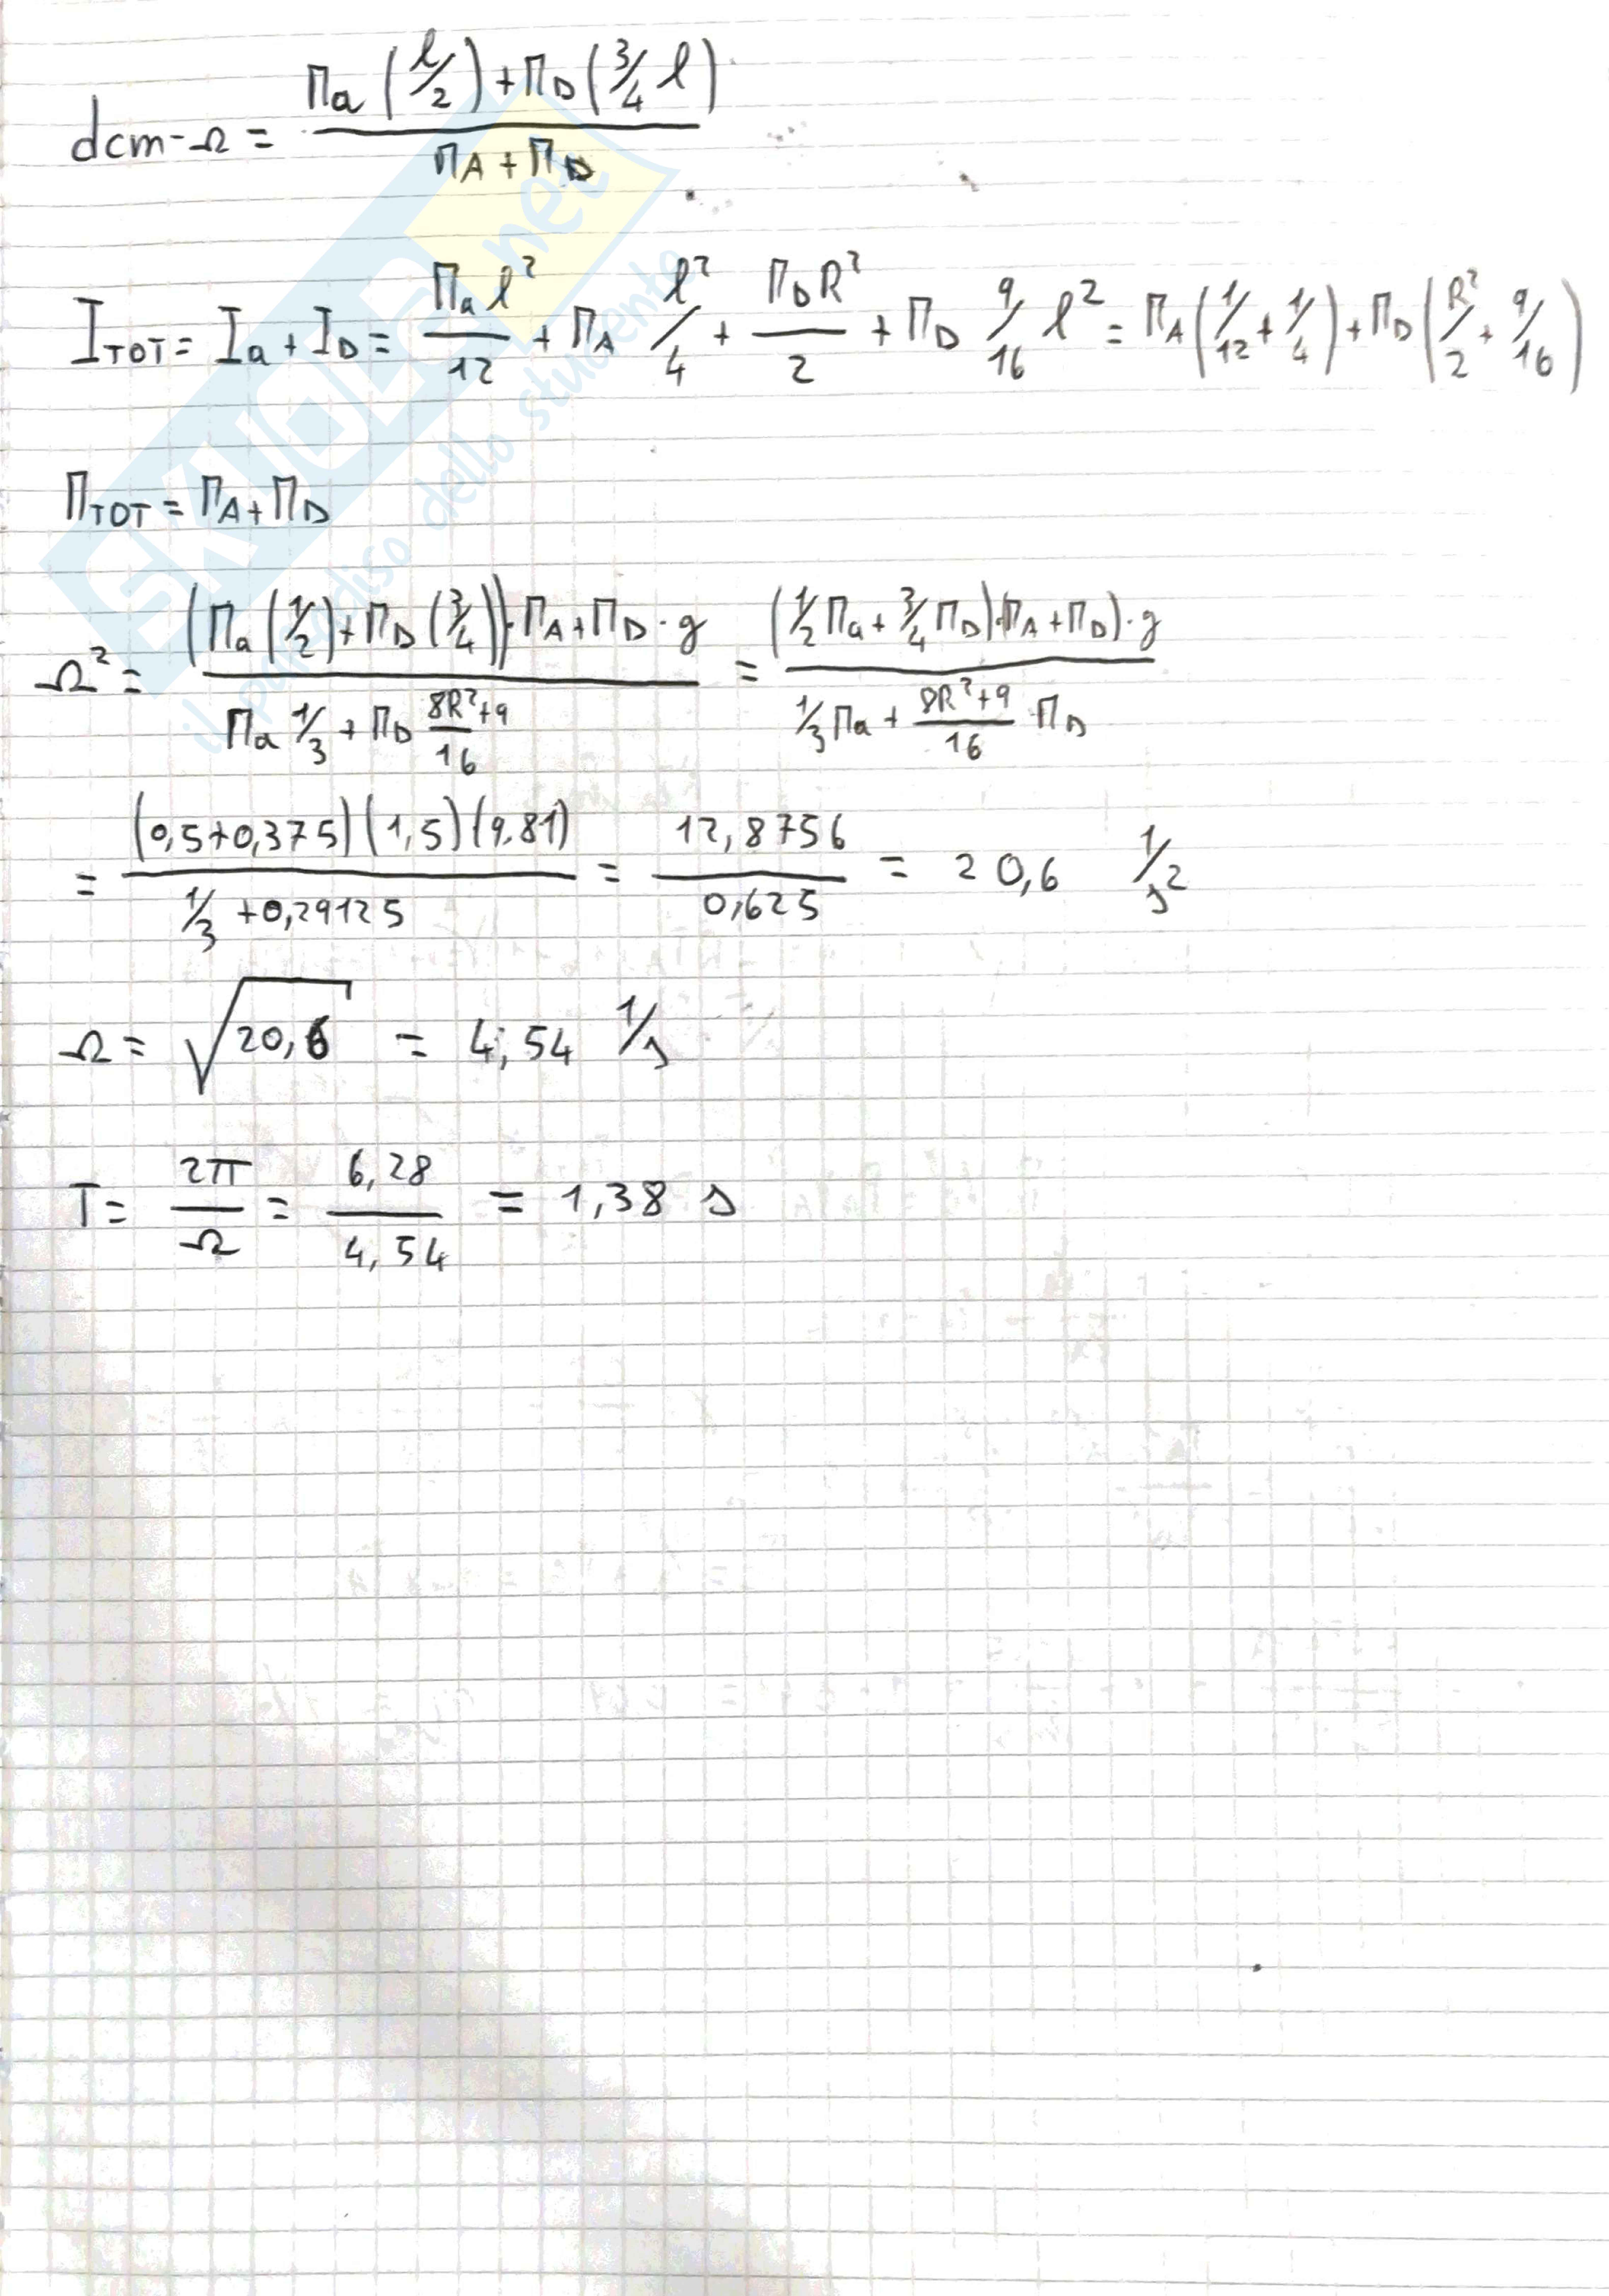 dcm-Ω = (Ma (l/2) + MD (3/4 l)) / (MA + MD)
ITOT = Ia + ID = Ma l²/12 + MA l²/4 + MD R²/2 + MD 9/16 l² = MA (1/12 + 1/4) + MD (R²/2 + 9/16)
MTOT = MA + MD
Ω² = (Ma (1/2) + MD (3/4)) · MA + MD · g / (Ma 1/3 + MD (8R²+9)/16) = (1/2 Ma + 3/4 MD) · (MA + MD) · g / (1/3 Ma + (8R²+9)/16 · MD)
= (0,5+0,375)(1,5)(9.81) / (1/3 + 0,29125) = 12,8756 / 0,625 = 20,6 1/s²
Ω = √20,6 = 4,54 1/s
T = 2π/Ω = 6,28/4,54 = 1,38 s
SKUOLA.net
il paradiso dello studente